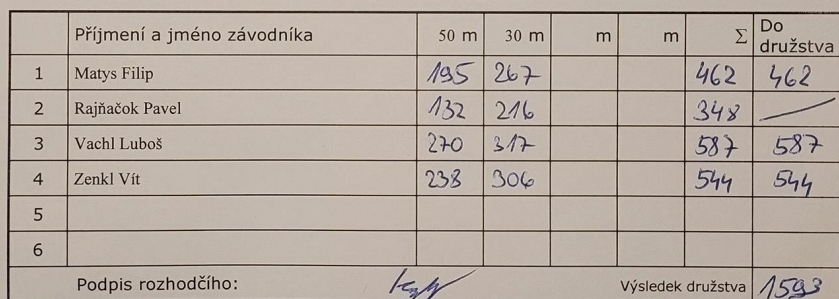 Příjmení a jméno závodníka 50 m 30 m m m Σ Do družstva
1 Matys Filip 195 267 462 462
2 Rajňačok Pavel 132 216 348 —
3 Vachl Luboš 270 317 587 587
4 Zenkl Vít 238 306 544 544
5
6
Podpis rozhodčího: Výsledek družstva 1593